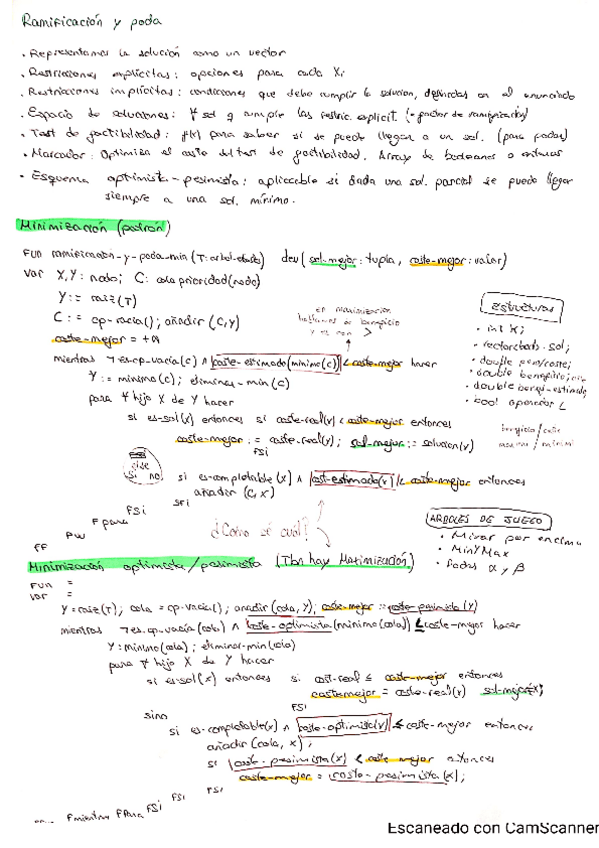 Ramificación y poda
· Representamos la solución como un vector
· Restricciones explícitas: opciones para cada Xi
· Restricciones implícitas: condiciones que debe cumplir la solucion, definidas en el enunciado
· Espacio de soluciones: ∀ sol q cumple las restric. explicit. (+ factor de ramificación)
· Test de factibilidad: f(x) para saber si se puede llegar a un sol. (para podar)
· Marcador: Optimiza el coste del test de factibilidad. Array de booleanos o enteros
· Esquema optimista-pesimista: aplicable si dada una sol. parcial se puede llegar
siempre a una sol. mínimo.
Minimización (patrón)
FUN ramificacion-y-poda-min (T: arbol-estados) dev (sol-mejor: tupla, coste-mejor: valor)
var X, Y: nodo; C: colaprioridad(nodo)
Y := raiz(T)
C := cp-vacia(); añadir (C, Y)
coste-mejor = +∞
en maximización
beneficio
>
mientras ¬es-cp-vacía(c) ∧ coste-estimado(minimo(c)) < coste-mejor hacer
Y := minimo(c); eliminar-min(c)
para ∀ hijo X de Y hacer
si es-sol(x) entonces si coste-real(x) < coste-mejor entonces
coste-mejor := coste-real(x); sol-mejor := solucion(x)
FSi
Estructuras
· int K;
· vector<bool> sol;
· double peso/coste;
· double beneficio;
· double
· bool operador <
si no
si es-completable(x) ∧ cost-estimado(x) < coste-mejor entonces
añadir (C, x)
FSi
FSi
Fpara
FF
¿Como sé cuál?
ARBOLES DE JUEGO
· Mirar por encima
· MinYMax
· Podas α y β
Minimización optimista/pesimista (Tbn hay Maximización)
FUN =
var =
Y = raiz(T); cola = cp-vacia(); anadir(cola, Y); coste-mejor := coste-pesimista(Y)
mientras ¬es-cp-vacía(cola) ∧ coste-optimista(minimo(cola)) ≤ coste-mejor hacer
Y: minimo(cola); eliminar-min(cola)
para ∀ hijo X de Y hacer
si es-sol(x) entonces si cost-real ≤ coste-mejor entonces
coste-mejor = coste-real(x) sol-mejor=X;
FSi
sino
si es-completable(x) ∧ coste-optimista(x) ≤ coste-mejor entonces
añadir(cola, x);
si coste-pesimista(x) < coste mejor entonces
coste-mejor = coste-pesimista(x);
FSi
FSi
FSi
Fmientras FPara
Escaneado con CamScanner